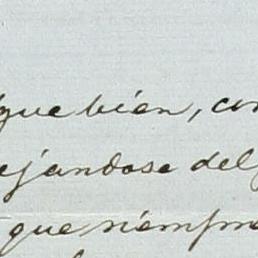 que bien, con
ejandose del
que siempre